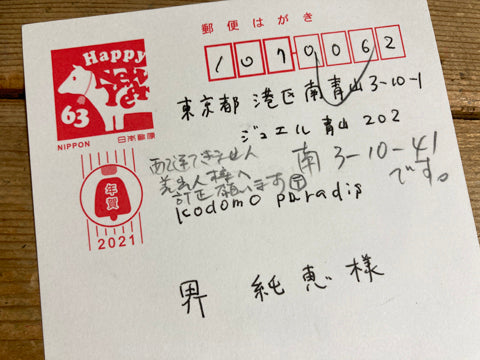 郵便はがき
Happy
New
Year
63
NIPPON 日本郵便
1070062
東京都 港区南青山3-10-1
ジュエル青山 202
南 3-10-41
です。
あて送できません
差出人様へ
訂正願います
Kodomo Paradis
年賀
2021
界 純恵 様